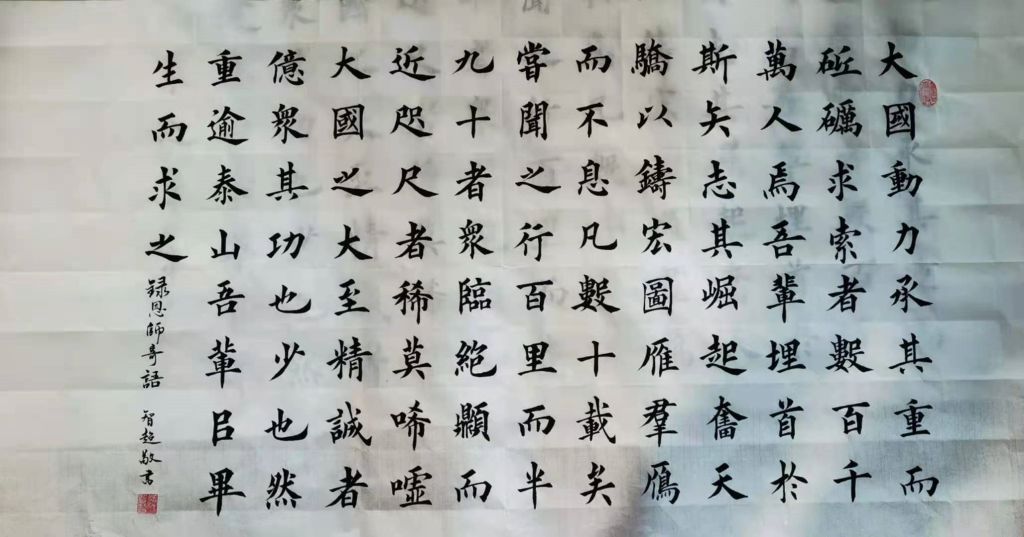 大國動力承其重而
砥礪求索者數百千
萬人焉吾輩埋首於
斯矢志其崛起奮天
驕以鑄宏圖雁羣鴈
而不息凡數十載矣
嘗聞之行百里而半
九十者衆臨絶顛而
近咫尺者稀莫唏嘘
大國之大至精誠者
億衆其功也少也然
重逾泰山吾輩㠯畢
生而求之
録恩師奇語 智超敬书